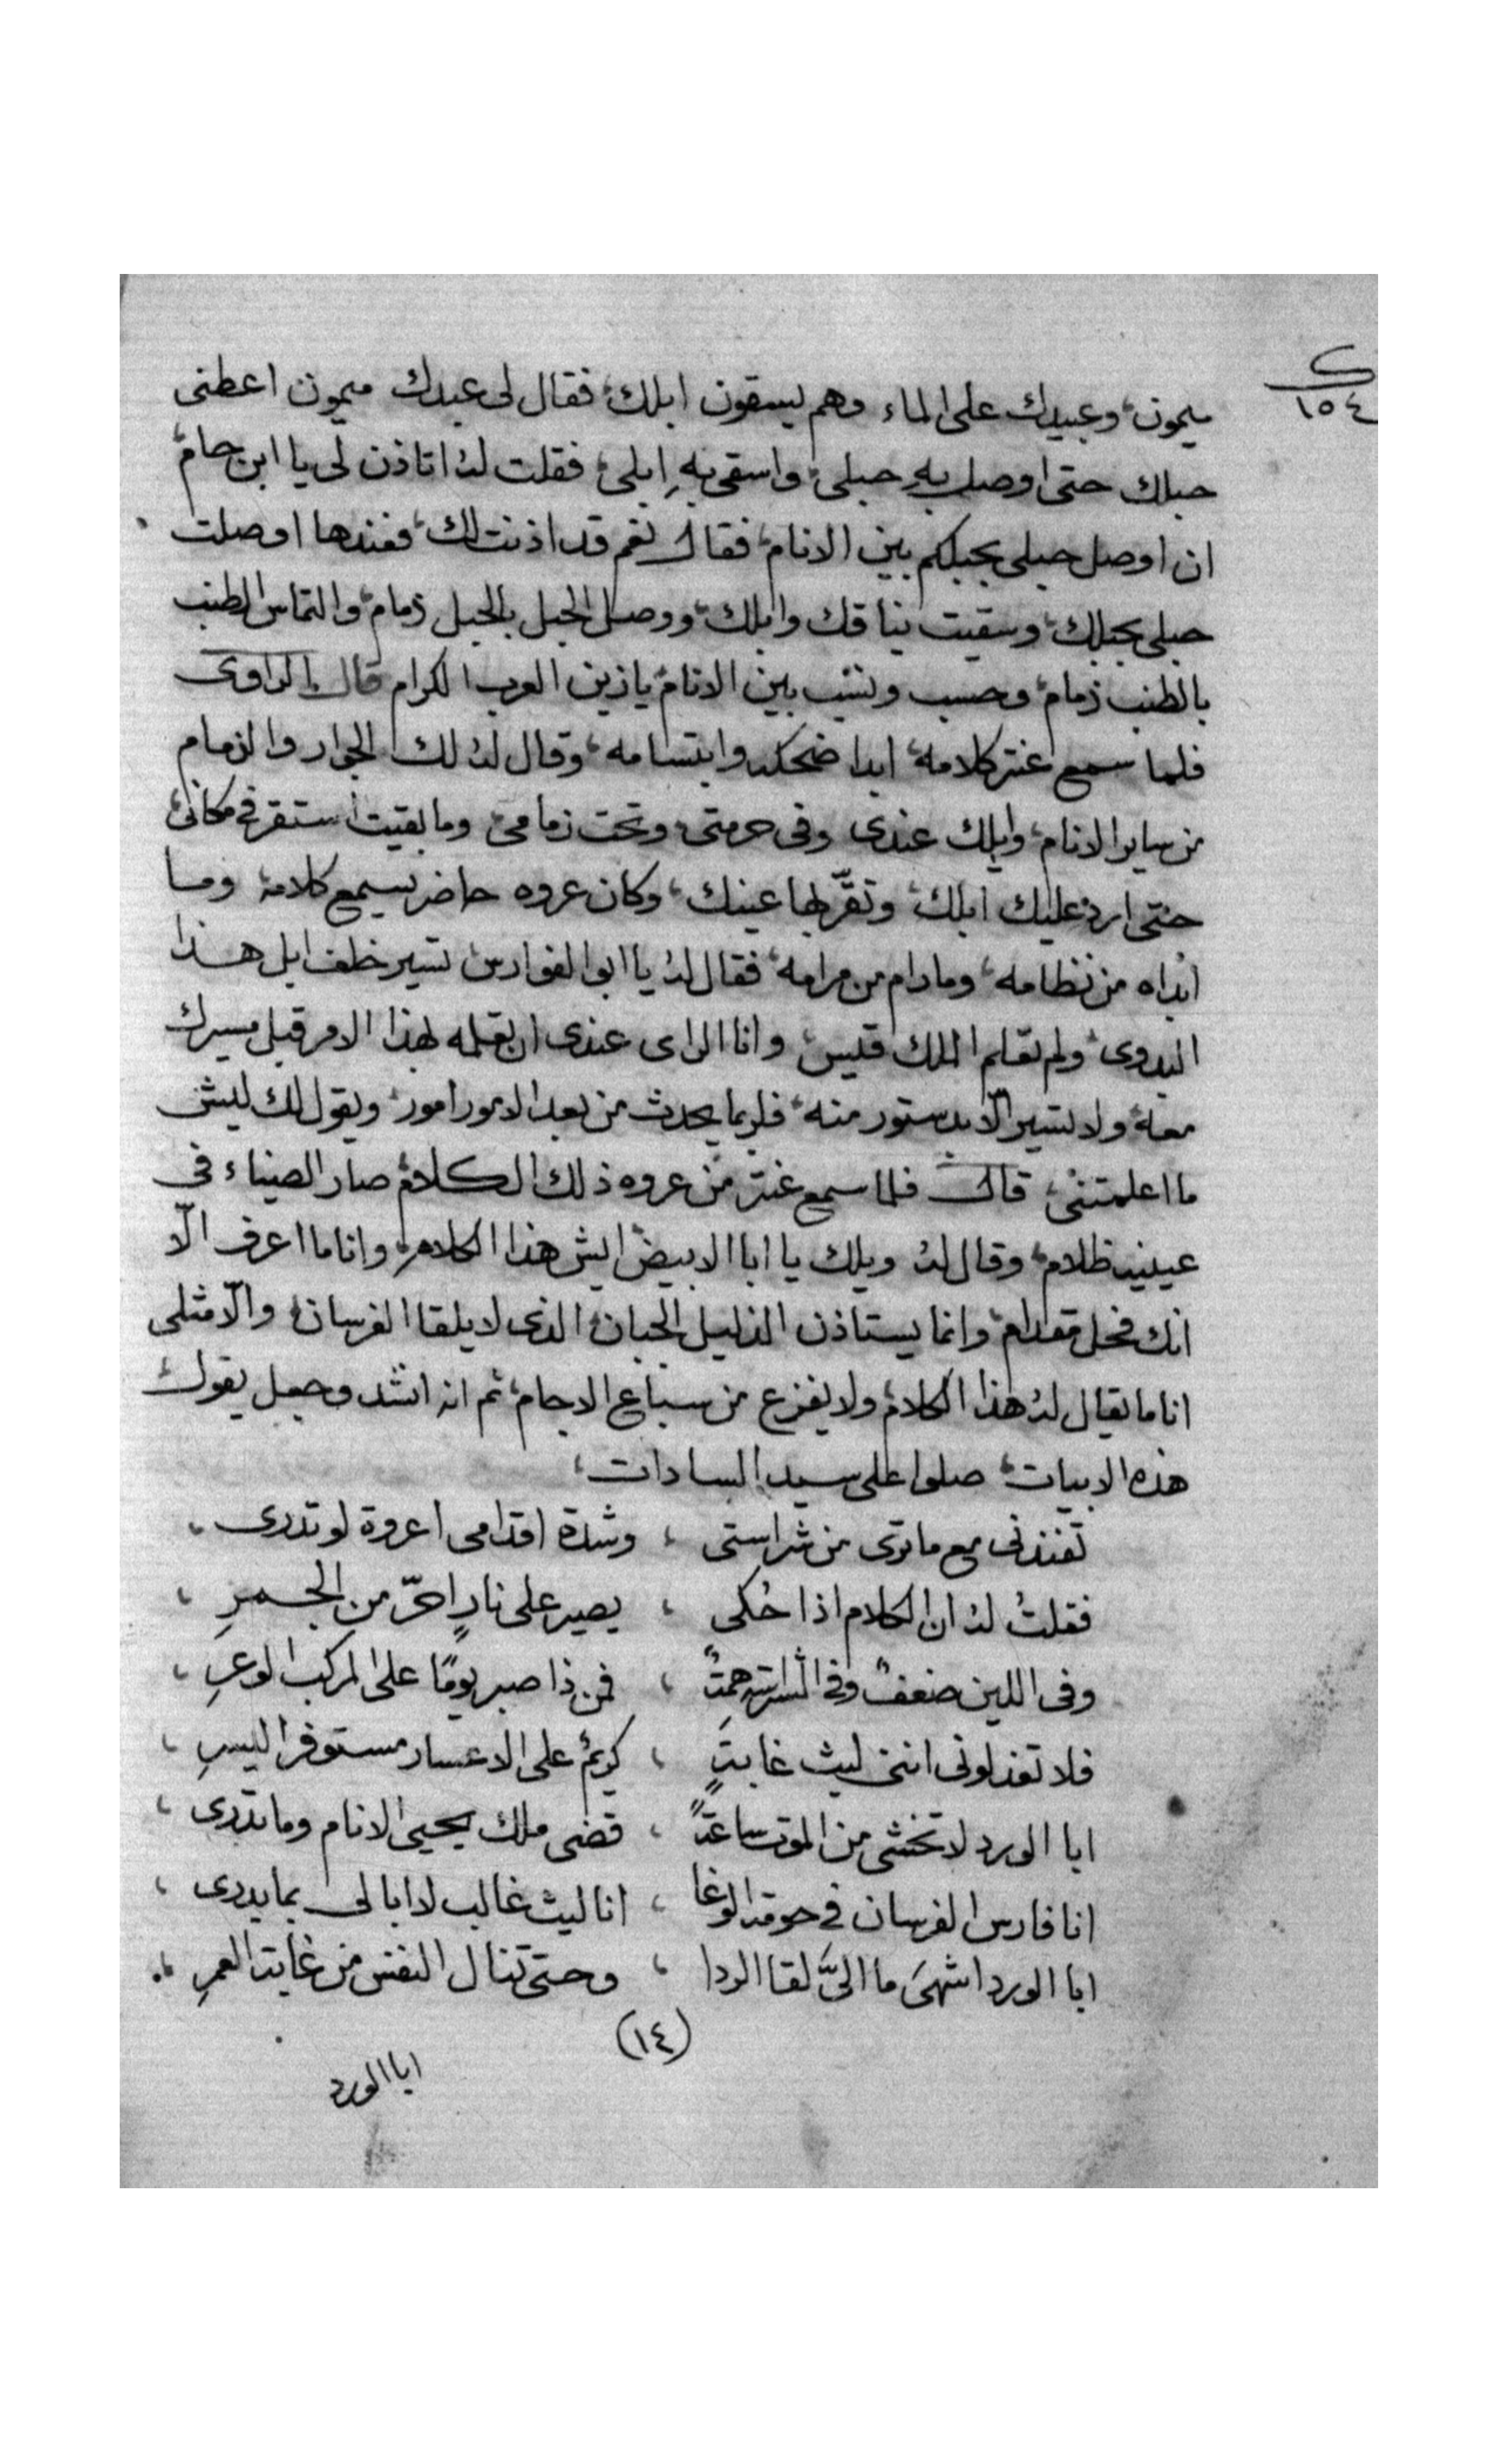 ک
١٥٤
ميمون، وعبيدك على الماء وهم يسقون ابلك، فقال لى عبدك ميمون اعطنى
حبلك حتى اوصل به حبلى، واسقى بهِ ابلى، فقلت لهُ اتاذن لى يا ابن حام،
ان اوصل حبلى بحبلكم بين الانام، فقال نعم قد اذنت لك، فعندها اوصلت
حبلى بحبلك، وسقيت نياقك وابلك، ووصل الحبل بالحبل ذمام، والتماس الطنب
بالطنب ذمام، وحسب ونسب بين الانام، يا زين العرب الكرام قال الراوى
فلما سمع عنتر كلامه، ابدا ضحكه وابتسامه، وقال له لك الجوار والزمام
من ساير الانام، وابلك عندى وفى حرمتى، وتحت زمامى، وما بقيت استقر فى مكانى،
حتى ارد عليك ابلك، وتقرّ بها عينك، وكان عروه حاضر يسمع كلامه، وما
ابداه من نظامه، وما دام من مرامه، فقال لهُ يا ابو الفوارس، تسير خلف ابل هذا
البدوى، ولم تعلم الملك قيس، وانا الراى عندى ان تعلمه لهذا الامر قبل مسيرك
معه، ولا تسير الّا بدستور منه، فلربما يحدث من بعد الامور امور، ويقول لك ليش
ما اعلمتنى، قال فلما سمع عنتر من عروه ذلك الكلام، صار الضياء فى
عينيه ظلام، وقال لهُ ويلك يا ابا الابيض ايش هذا الكلام، وانا ما اعرف الّا
انك فحل مقدام، وانما يستاذن الذليل الجبان، الذى لا يلقا الفرسان، والّا مثلى
انا ما يقال لهُ هذا الكلام، ولا يفزع من سباع الاجام، ثم انه انشد وجعل يقول
هذه الابيات، صلوا على سيد السادات،
تفندنى مع ما ترى من شراستى ، وشدة اقدامى اعروة لو تدرى ،
فقلتُ لهُ ان الكلام اذا حُكى ، يصير على نارٍ احرّ من الجمرِ ،
وفى اللين ضعفٌ وفى الشراسة همةٌ ، فمن ذا صبر يومًا على المركب الوعرِ ،
فلا تعذلونى اننى ليث غابةٍ ، كريمٌ على الاعسار مستوفر اليسرِ ،
ابا الورد لا تخشى من الموت ساعةً ، قضى ملك يحيى الانام وما تدرى ،
انا فارس الفرسان فى حومة الوغا ، انا ليث غالب لا ابالى بما يدرى ،
ابا الورد اشهىَ ما الىَّ لقا الردا ، وحتى تنال النفس من غاية العمرِ ،
(١٤)
ابا الورد